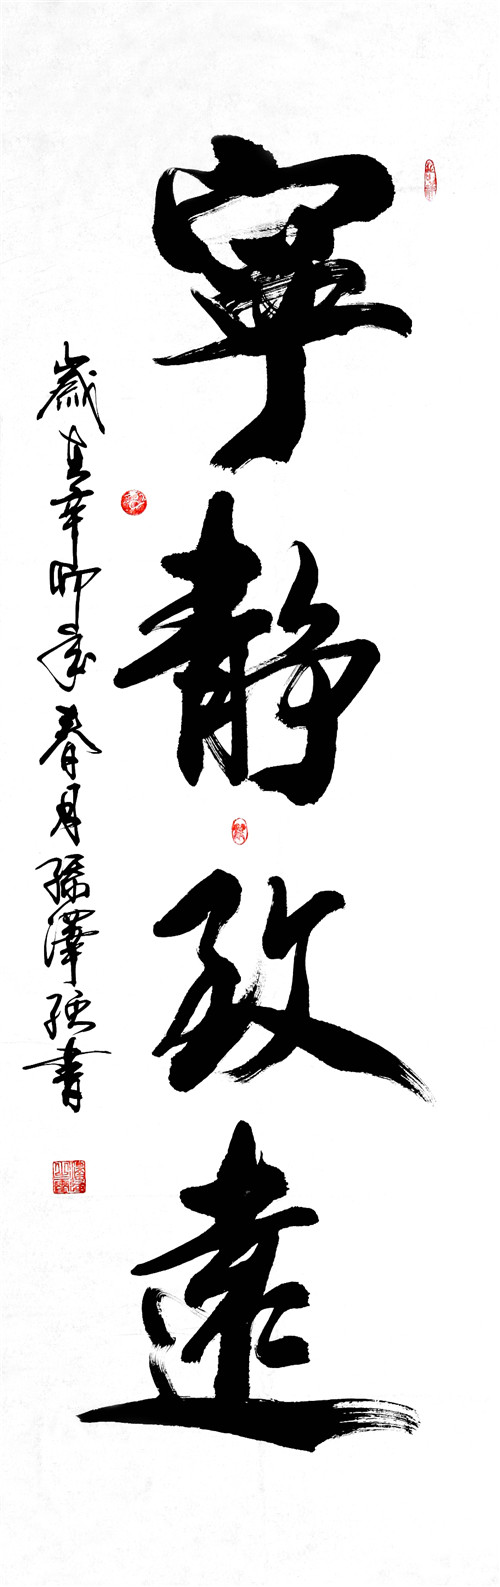 寧静致遠
歲在辛卯年春月孫澤書